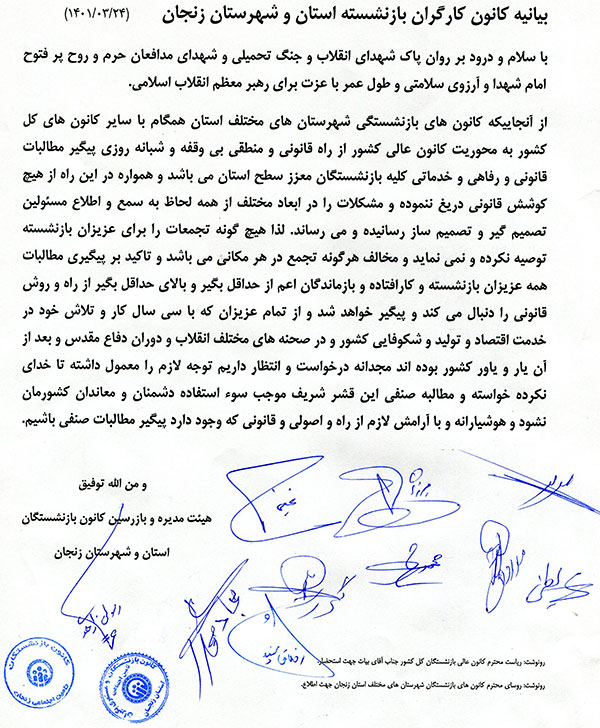 بیانیه کانون کارگران بازنشسته استان و شهرستان زنجان (۱۴۰۱/۰۳/۲۴)
با سلام و درود بر روان پاک شهدای انقلاب و جنگ تحمیلی و شهدای مدافعان حرم و روح پر فتوح
امام شهدا و آرزوی سلامتی و طول عمر با عزت برای رهبر معظم انقلاب اسلامی.
از آنجاییکه کانون های بازنشستگی شهرستان های مختلف استان همگام با سایر کانون های کل
کشور به محوریت کانون عالی کشور از راه قانونی و منطقی بی وقفه و شبانه روزی پیگیر مطالبات
قانونی و رفاهی و خدماتی کلیه بازنشستگان معزز سطح استان می باشد و همواره در این راه از هیچ
کوشش قانونی دریغ ننموده و مشکلات را در ابعاد مختلف از همه لحاظ به سمع و اطلاع مسئولین
تصمیم گیر و تصمیم ساز رسانیده و می رساند. لذا هیچ گونه تجمعات را برای عزیزان بازنشسته
توصیه نکرده و نمی نماید و مخالف هرگونه تجمع در هر مکانی می باشد و تاکید بر پیگیری مطالبات
همه عزیزان بازنشسته و کارافتاده و بازماندگان اعم از حداقل بگیر و بالای حداقل بگیر از راه و روش
قانونی را دنبال می کند و پیگیر خواهد شد و از تمام عزیزان که با سی سال کار و تلاش خود در
خدمت اقتصاد و تولید و شکوفایی کشور و در صحنه های مختلف انقلاب و دوران دفاع مقدس و بعد از
آن یار و یاور کشور بوده اند مجدانه درخواست و انتظار داریم توجه لازم را معمول داشته تا خدای
نکرده خواسته و مطالبه صنفی این قشر شریف موجب سوء استفاده دشمنان و معاندان کشورمان
نشود و هوشیارانه و با آرامش لازم از راه و اصولی و قانونی که وجود دارد پیگیر مطالبات صنفی باشیم.
و من الله توفیق
هیئت مدیره و بازرسین کانون بازنشستگان
استان و شهرستان زنجان
رونوشت: ریاست محترم کانون عالی بازنشستگان کل کشور جناب آقای بیات جهت استحضار.
رونوشت: روسای محترم کانون های بازنشستگان شهرستان های مختلف استان زنجان جهت اطلاع.
کانون بازنشستگان
تامین اجتماعی زنجان